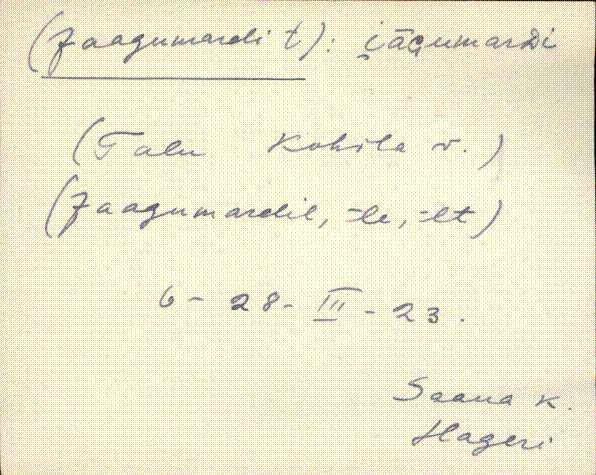 (Jaagumardi t): i̯āGumarDi
(Talu Kohila v.)
(Jaagumardil, =le, =lt)
6-28-III-23.
Saana k.
Hageri